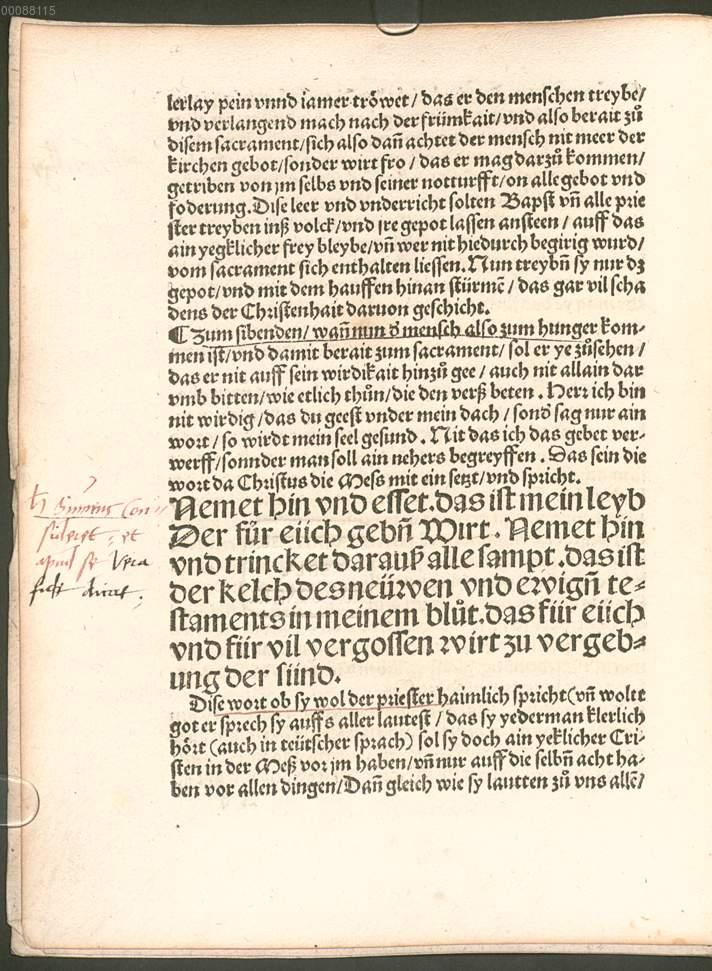 00088115
lerlay pein vnnd iamer tröwet / das er den menschen treybe/
vnd verlangend mach nach der frümkait/vnd also berait zů
disem sacrament/sich also dañ achtet der mensch nit meer der
kirchen gebot/sonder wirt fro / das er mag darzů kommen/
getriben von jm selbs vnd seiner notturfft/on alle gebot vnd
foderung. Dise leer vnd vnderricht solten Bapst vñ alle prie
ster treyben inß volck/vnd jre gepot lassen ansteen / auff das
ain yegklicher frey bleybe/vñ wer nit hiedurch begirig wurd/
vom sacrament sich enthalten liessen. Nun treybñ sy nur dz
gepot/vnd mit dem hauffen hinan stürmẽ / das gar vil scha
dens der Christenhait daruon geschicht.
¶ Zum sibenden/ wañ nun d̃ mensch also zum hunger kom⸗
men ist/vnd damit berait zum sacrament/ sol er ye zůsehen /
das er nit auff sein wirdikait hinzů gee / auch nit allain dar
vmb bitten/wie etlich thůn/die den verß beten . Herr ich bin
nit wirdig /das du geest vnder mein dach / sond̃ sag nur ain
wort / so wirdt mein seel gesund . Nit das ich das gebet ver⸗
werff/sonnder man soll ain nehers begreyffen . Das sein die
wort da Christus die Mess mit ein setzt/vnd spricht.
Nemet hin vnd esset. das ist mein leyb
Der für eüch gebñ Wirt . Nemet hin
vnd trincket darauß alle sampt . das ist
der kelch des neüwen vnd ewigñ te⸗
staments in meinem blůt. das für eüch
vnd für vil vergossen wirt zu vergeb⸗
ung der sünd.
Dise wort ob sy wol der priester haimlich spricht (vñ wolt e
got er sprech sy auffs aller lautest / das sy yederman klerlich
hört (auch in teütscher sprach) sol sy doch ain yeklicher Cri⸗
sten in der Meß vor jm haben/vñ nur auff die selbñ acht ha⸗
ben vor allen dingen/Dañ gleich wie sy lautten zů vns allẽ/
et